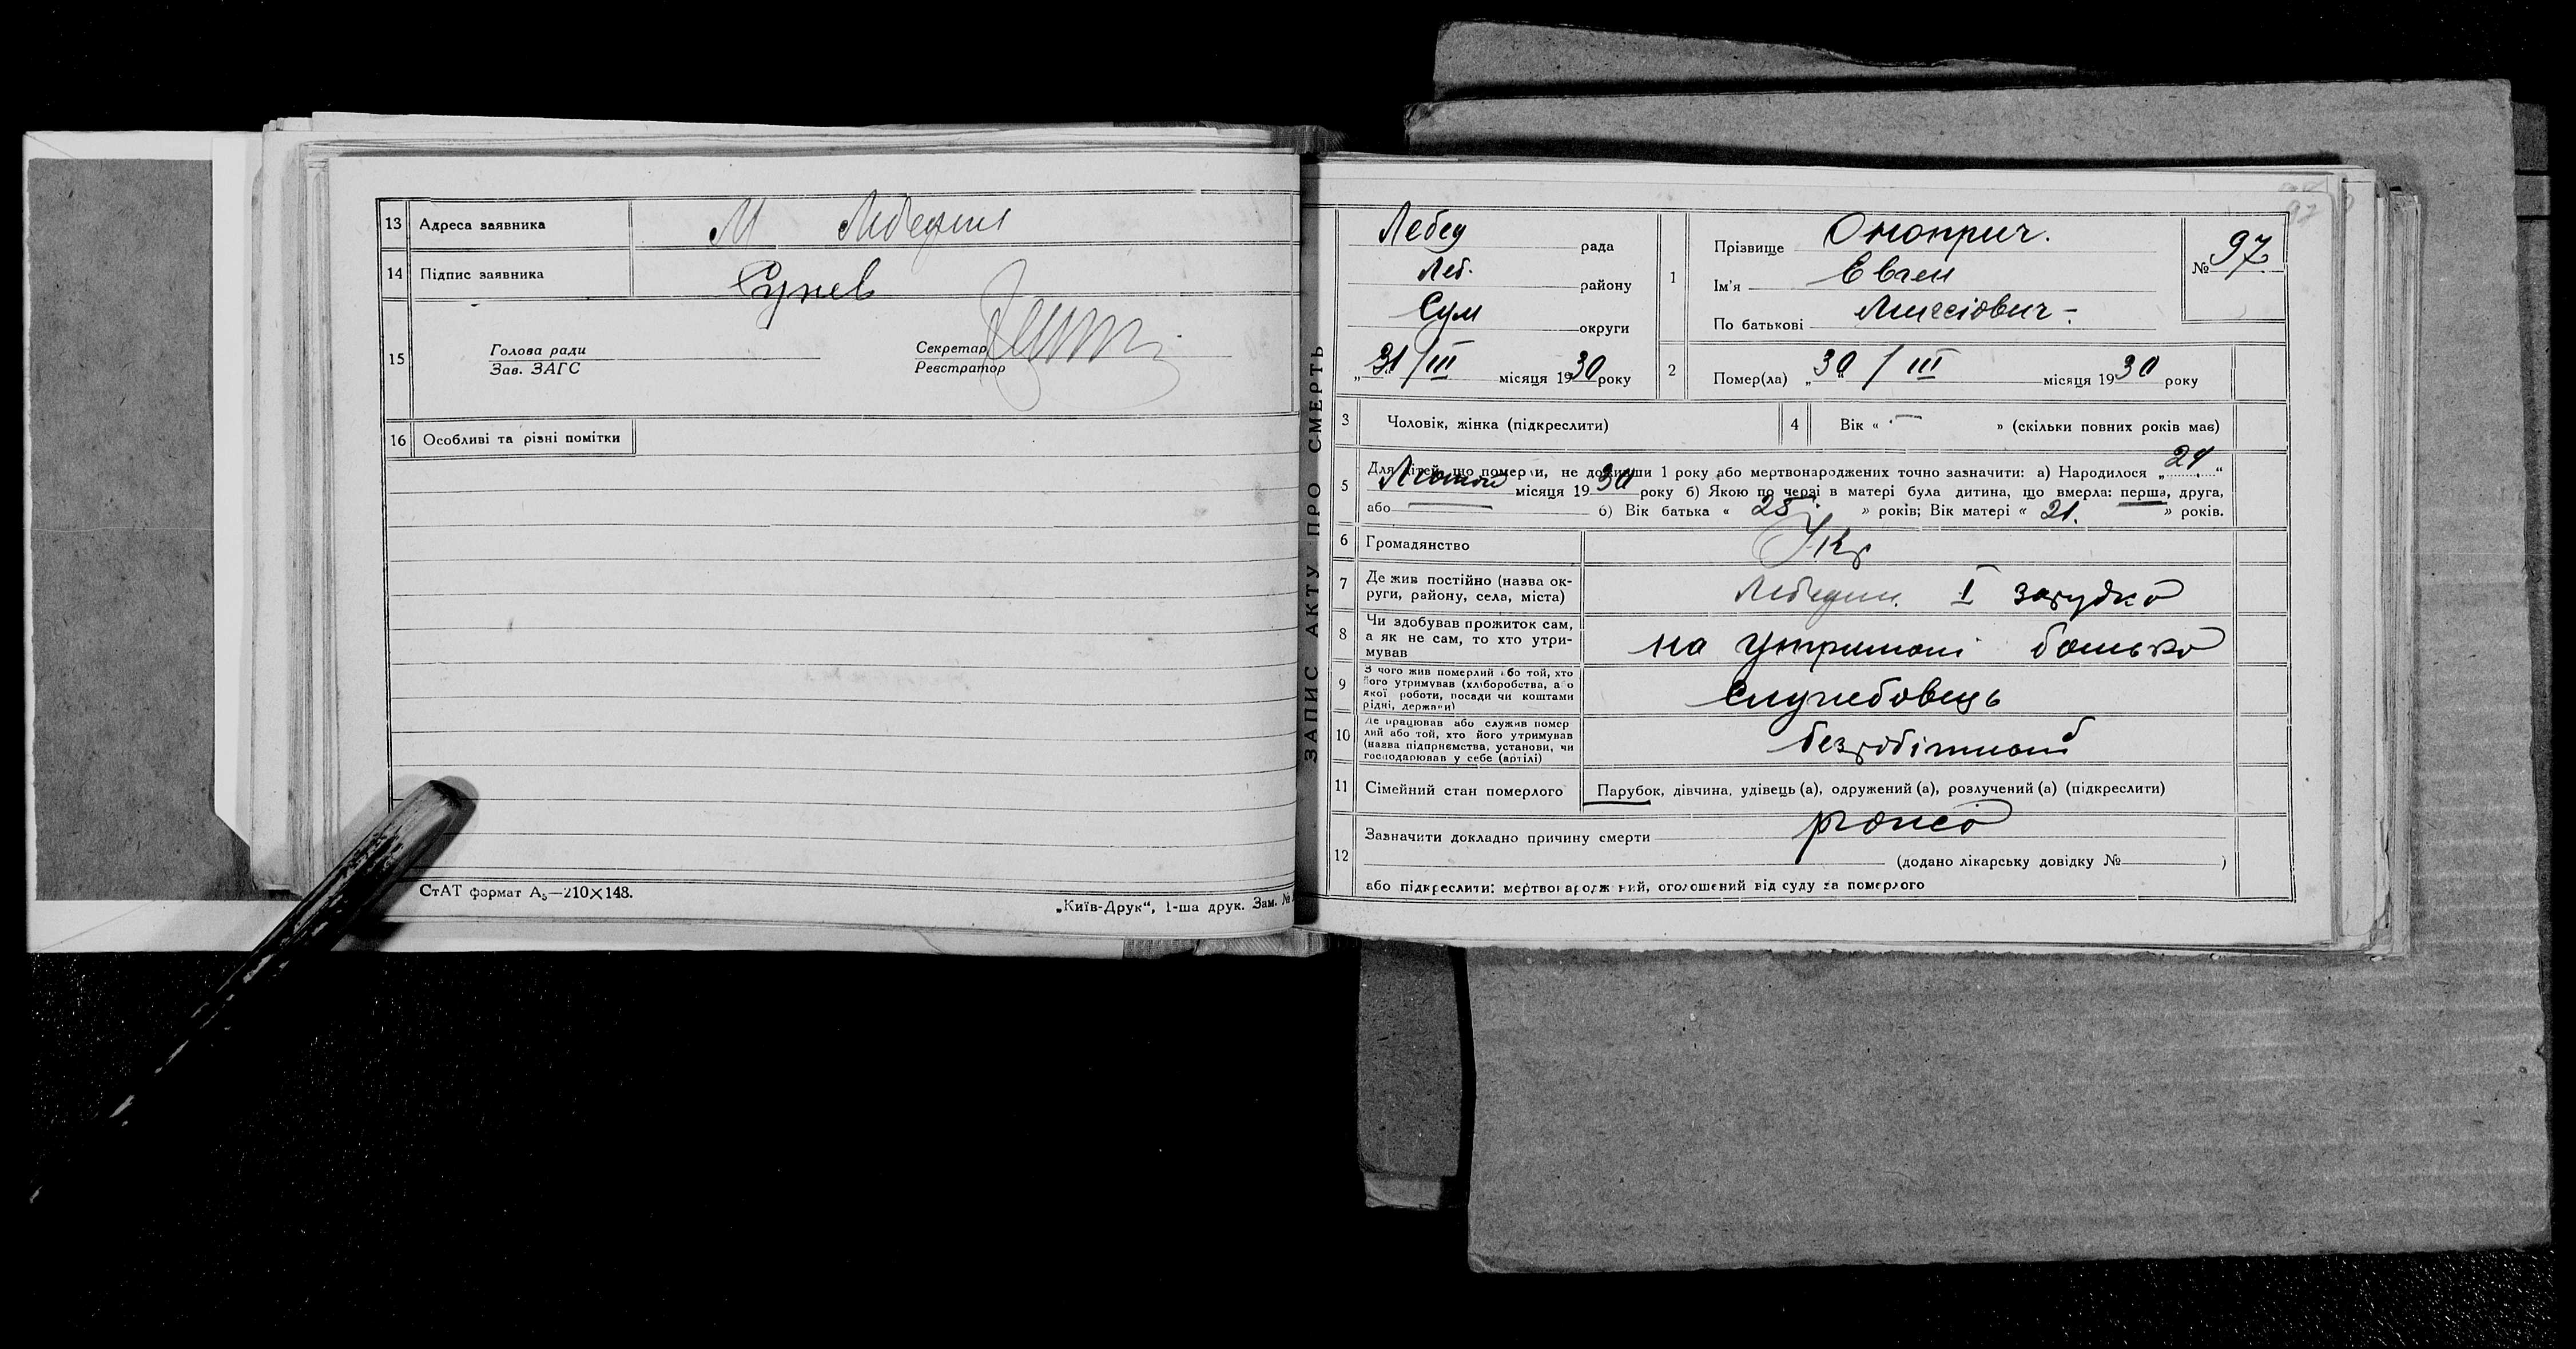 13 Адреса заявника М Лебедин
14 Підпис заявника
15 Голова ради
Зав. ЗАГС
Секретар
Реєстратор
16 Особливі та різні помітки
СтАТ формат А₅—210×148.
„Київ-Друк“, 1-ша друк. Зам. №
ЗАПИС АКТУ ПРО СМЕРТЬ
Лебед рада
Леб. району
Сум округи
„31/III місяця 1930 року
1 Прізвище Оноприч.
Ім'я Евген
По батькові
№ 97
2 Помер(ла) „30“/III місяця 1930 року
3 Чоловік, жінка (підкреслити)
4 Вік « — » (скільки повних років має)
5 Для дітей, що померли, не доживши 1 року або мертвонароджених точно зазначити: а) Народилося „24“
Лютой місяця 1930 року б) Якою по черзі в матері була дитина, що вмерла: перша, друга,
або — б) Вік батька « 25. » років; Вік матері « 21. » років.
6 Громадянство Укр
7 Де жив постійно (назва ок-
руги, району, села, міста) Лебедин. I
8 Чи здобував прожиток сам,
а як не сам, то хто утри-
мував на утримані батька
9 З чого жив померлий або той, хто
його утримував (хліборобства, або
якої роботи, посади чи коштами
рідні, держави) службовець
10 Де працював або служив помер
лий або той, хто його утримував
(назва підприємства, установи, чи
господарював у себе (артілі) безробітный
11 Сімейний стан померлого Парубок, дівчина, удівець (а), одружений (а), розлучений (а) (підкреслити)
12 Зазначити докладно причину смерти
(додано лікарську довідку № )
або підкреслити: мертвонароджений, оголошений від суду за померлого